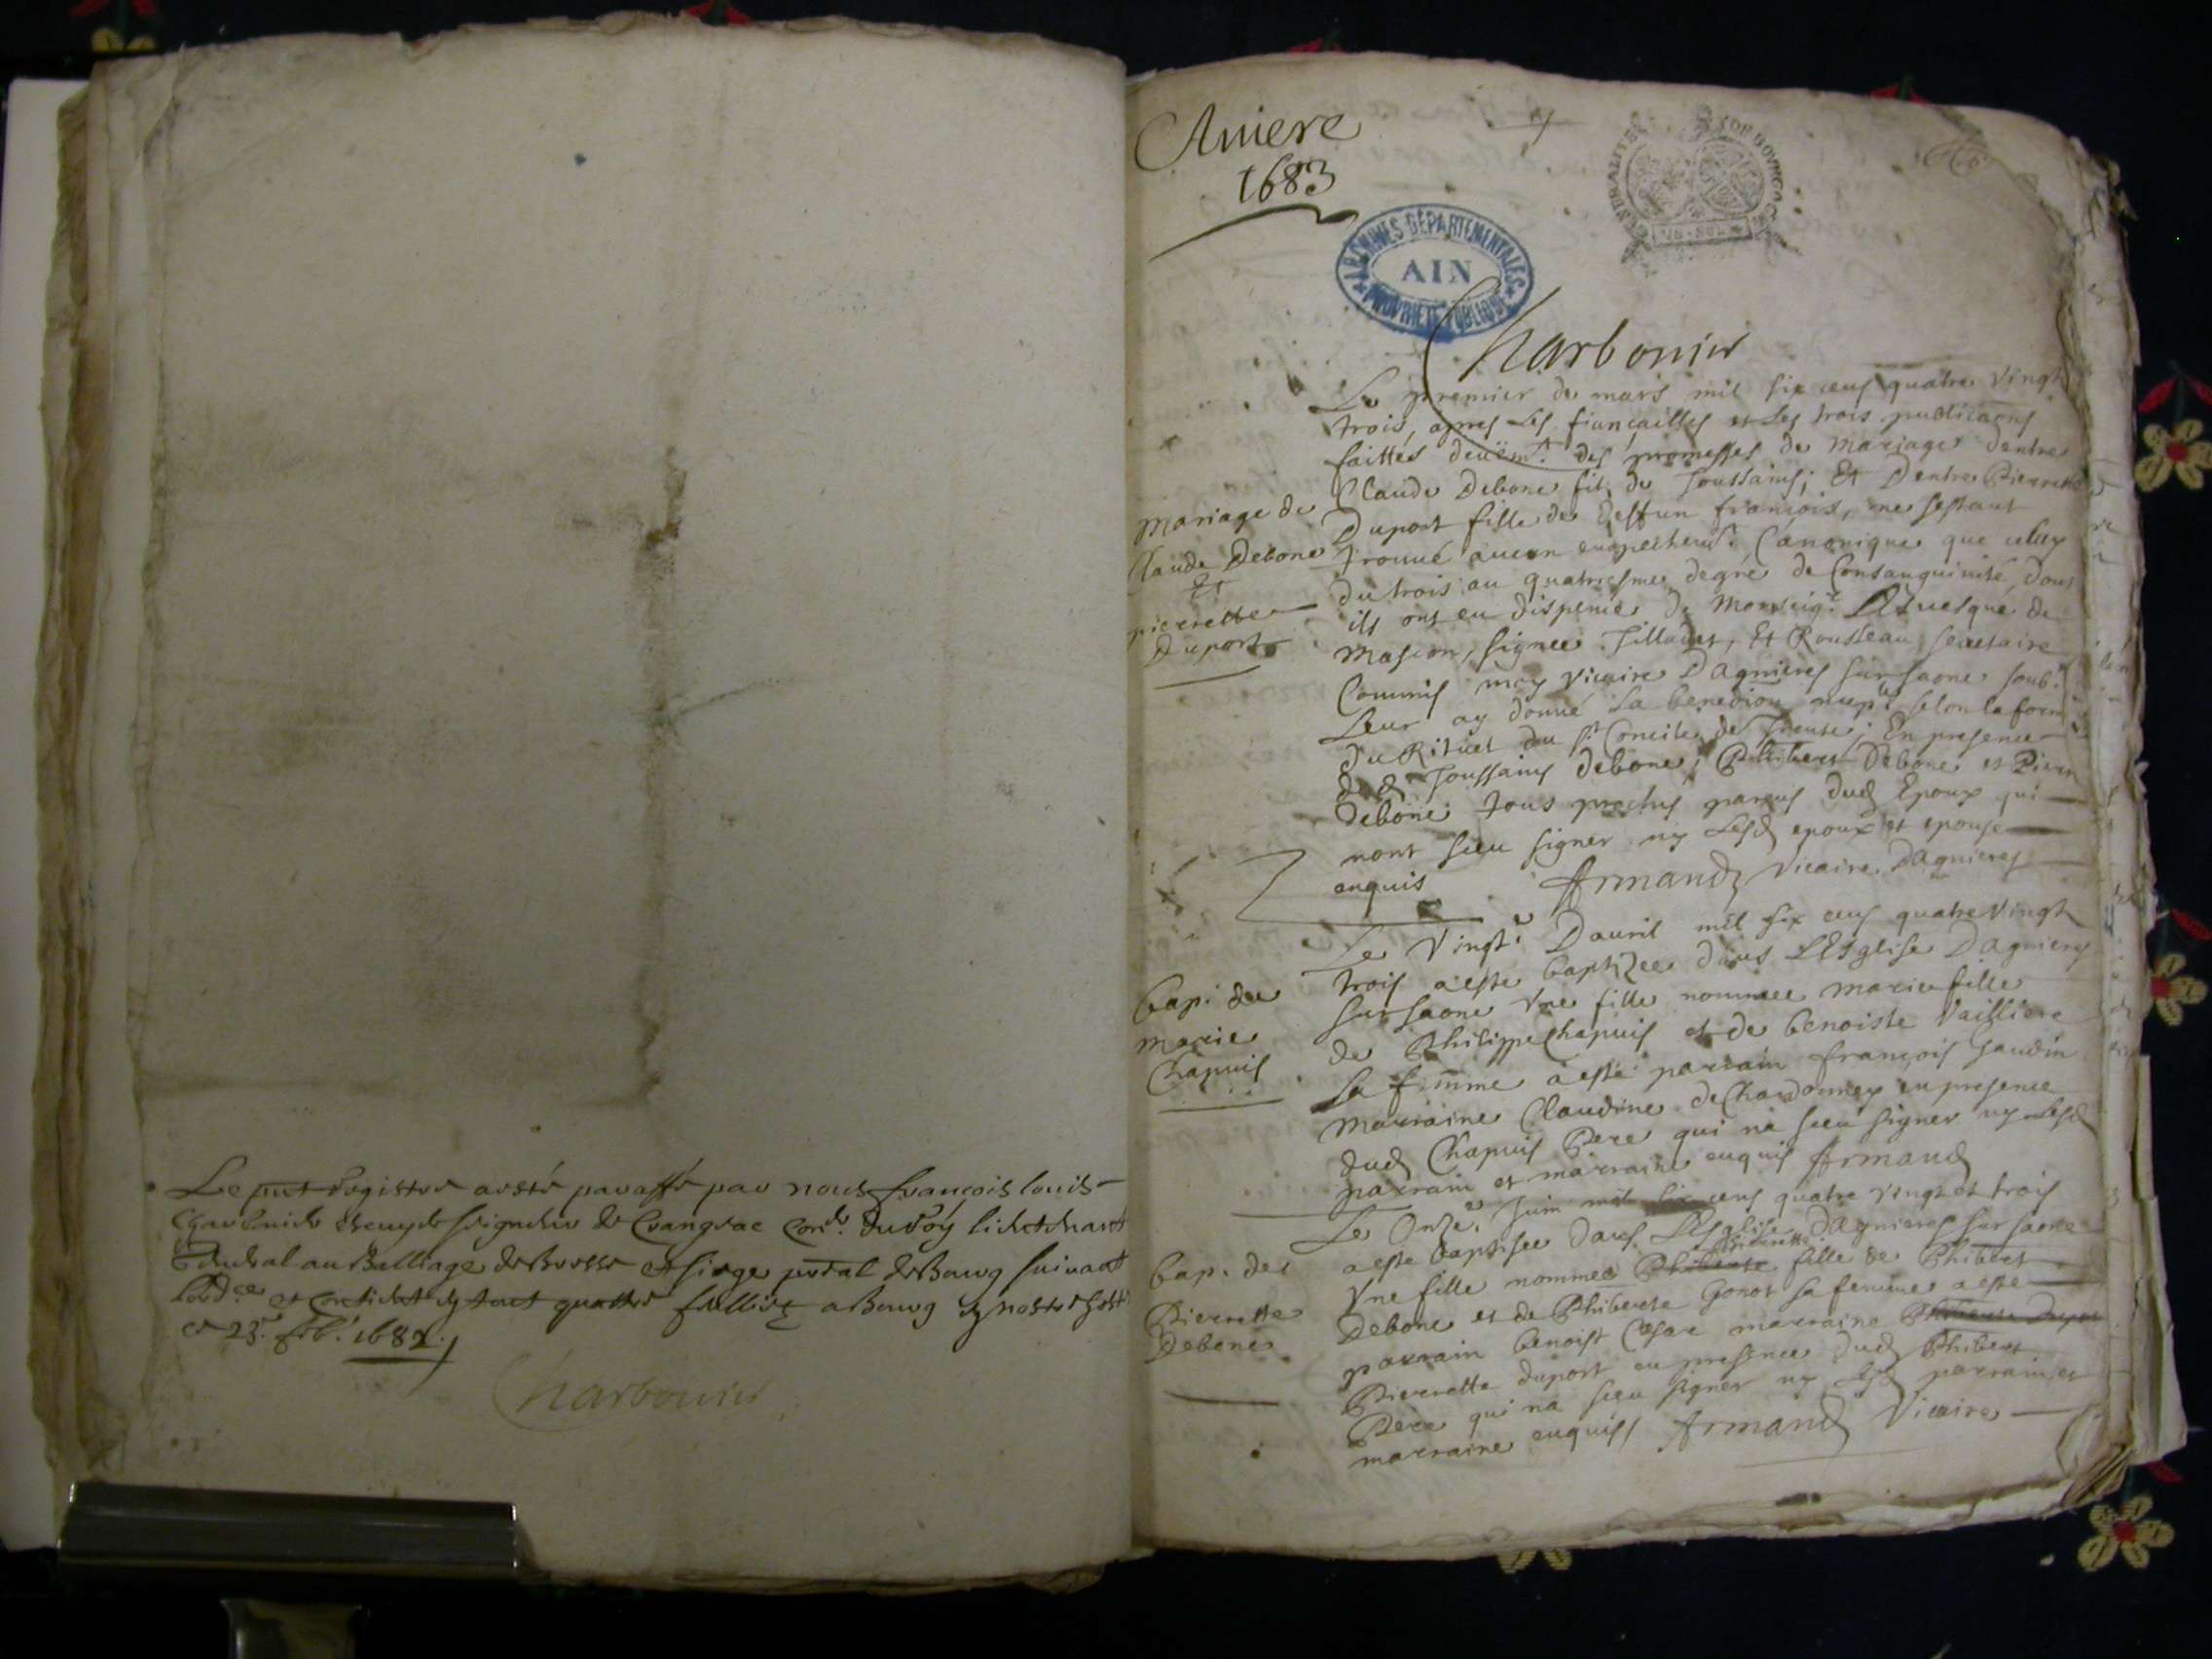 Le pnt registre a esté paraffé par nous françois louis
Charbonier Escuyer seigneur de Crangeac Conr. du Roy lieutenant
General au Balliage de Bresse et siege pntal de Bourg suivant
et contient quattre feullietz a Bourg
ce 23e. feb. 1682
Charbonier
Aniere
1683
ARCHIVES DÉPARTEMENTALES
AIN
PROPRIÉTÉ PUBLIQUE
Charbonier
Le premier de mars mil six cens quatre vingt
trois, apres les fiançailles et les trois publicaons
faittes deuëmt. des promesses de Mariage dentre
Claude Debone fils de Toussains; Et Dentre Pierrette
Duport fille de deffun françois, ne sestant
trouué aucun empechemt. Canonique que celuy
du trois au quatriesme degré de Consanguinité, dont
ils ont eu dispense de Monseigr. L'Euesque de
Mascon, signee Tilladet, Et Rousseau secretaire
Commis moy vicaire D'agnieres sur saone soub.
Leur ay donné la benedion nupt. selon la form
du Rituel du St Concile de Trente; En presence
de Toussains debone; Philibert Debone et Pierre
debone tous proches parens dud Epoux qui
nont sceu signer ny lesd epoux et epouse
enquis Armand Vicaire Dagnieres
Mariage de
Claude Debone
Et
pierrette
Duport
Le Vingte Dauril mil six cens quatre vingt
trois a este baptizee dans L'Esglise Dagnieres
sur saone Vne fille nommee marie fille
de Philippe Chapuis et de benoiste Vailliere
sa femme a esté parrain françois Gaudin
marraine Claudine de Chardonney en presence
dud Chapuis Pere qui na sceu signer ny lesd
parrain et marraine enquis Armand
bap: de
marie
Chapuis
Le Onze. Juin mil six cens quatre vingt et trois
a este baptisee dans L'Esglise Dagnieres sur saone
Pierrette
Vne fille nommee Philiberte fille de Phibert
Debone et de Phiberte Gonot sa femme a este
parrain benoist Cesar marraine Phiberte Duport
Pierrette duport en presence dud Phibert
Pere qui na sceu signer ny lesd parrain et
marraine enquiss Armand Vicaire
bap. de
Pierrette
Debone